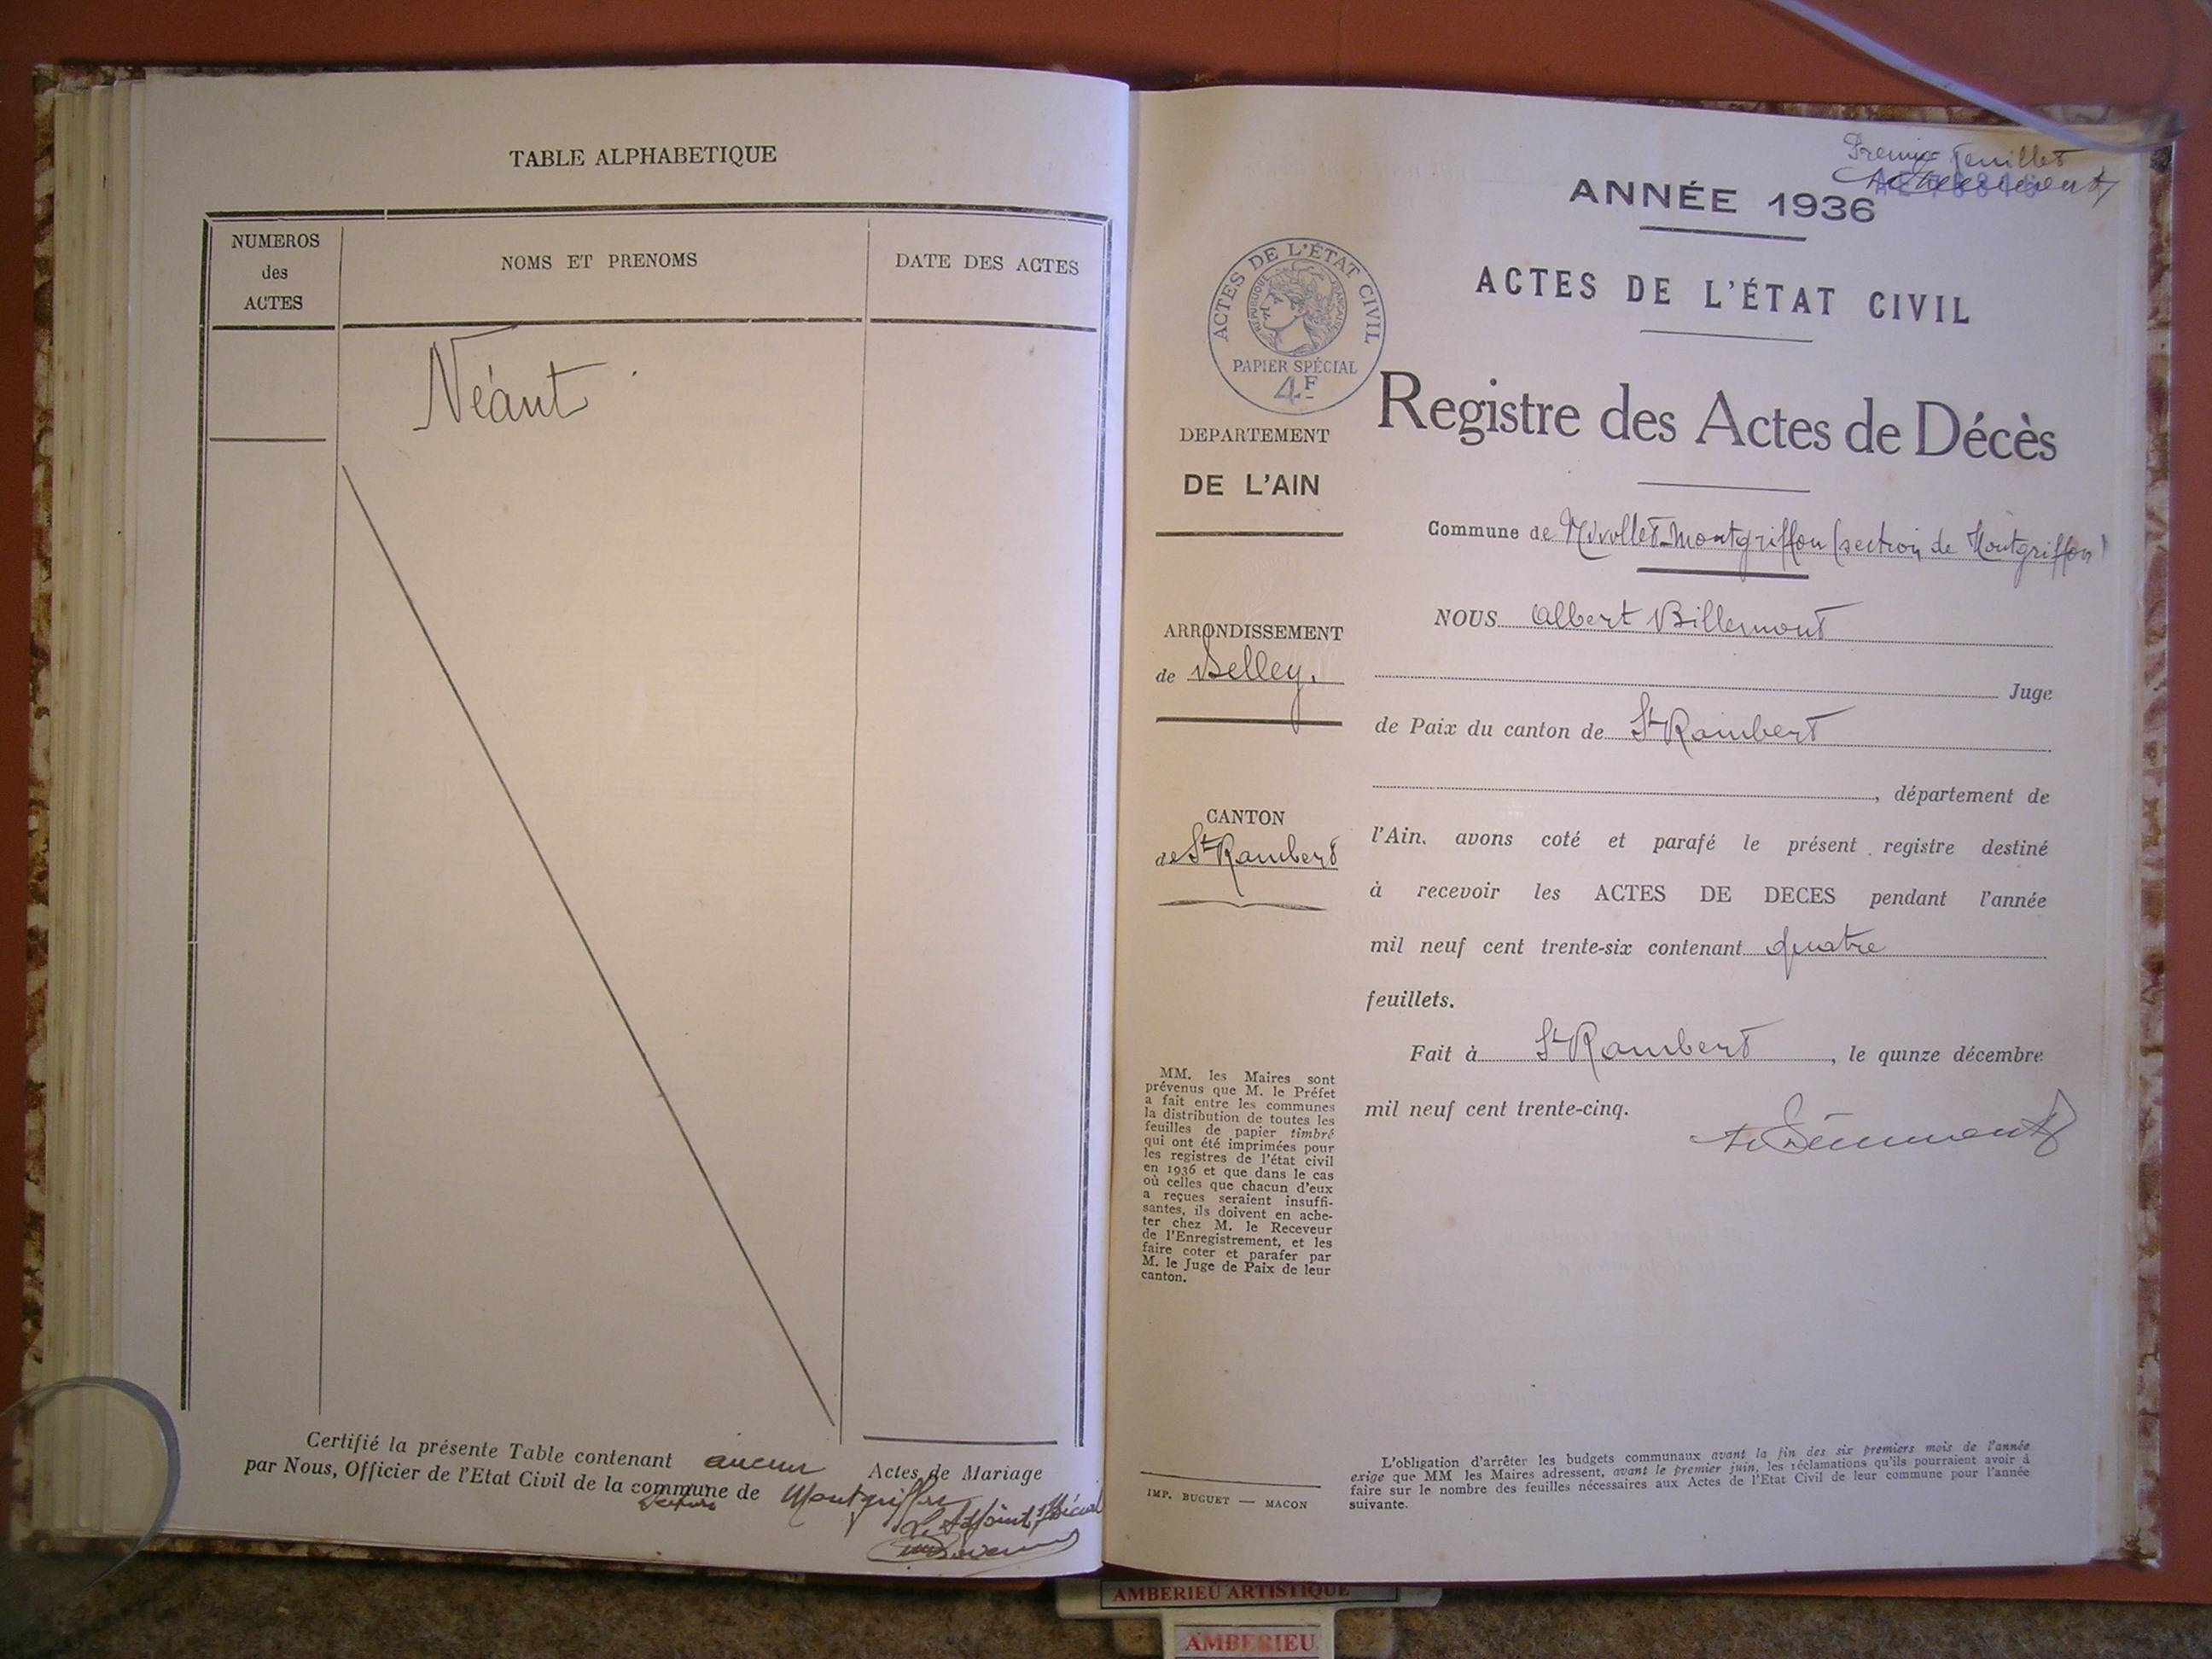 TABLE ALPHABETIQUE
NUMEROS
des
ACTES
NOMS ET PRENOMS
DATE DES ACTES
Néant
Certifié la présente Table contenant aucun Actes de Mariage
par Nous, Officier de l'Etat Civil de la commune de Montgriffon
section
L'Adjoint Spécial
Premier feuillet
ANNÉE 1936
ACTES DE L'ÉTAT CIVIL
ACTES DE L'ÉTAT CIVIL
RÉPUBLIQUE FRANÇAISE
PAPIER SPÉCIAL
4F
Registre des Actes de Décès
DEPARTEMENT
DE L'AIN
Commune de Nivollet-Montgriffon (section de Montgriffon)
ARRONDISSEMENT
de Belley.
CANTON
de St Rambert
NOUS Albert Billemont
Juge
de Paix du canton de St Rambert
, département de
l'Ain, avons coté et parafé le présent registre destiné
à recevoir les ACTES DE DECES pendant l'année
mil neuf cent trente-six contenant quatre
feuillets.
Fait à St Rambert, le quinze décembre
mil neuf cent trente-cinq.
MM. les Maires sont
prévenus que M. le Préfet
a fait entre les communes
la distribution de toutes les
feuilles de papier timbré
qui ont été imprimées pour
les registres de l'état civil
en 1936 et que dans le cas
où celles que chacun d'eux
a reçues seraient insuffi-
santes, ils doivent en ache-
ter chez M. le Receveur
de l'Enregistrement, et les
faire coter et parafer par
M. le Juge de Paix de leur
canton.
IMP. BUGUET — MACON
L'obligation d'arrêter les budgets communaux avant la fin des six premiers mois de l'année
exige que MM les Maires adressent, avant le premier juin, les réclamations qu'ils pourraient avoir à
faire sur le nombre des feuilles nécessaires aux Actes de l'Etat Civil de leur commune pour l'année
suivante.
AMBERIEU ARTISTIQUE
AMBERIEU